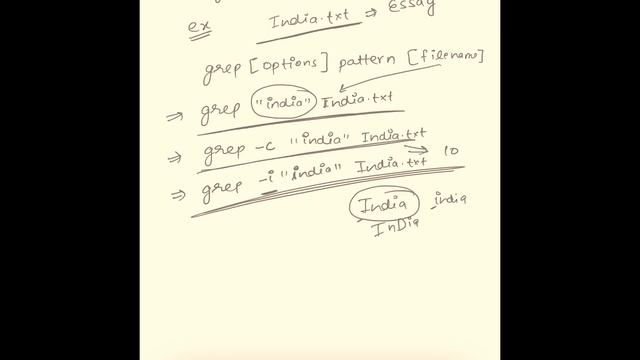 ex India.txt ⇒ Essay
grep [options] pattern [filename]
⇒ grep "india" India.txt
⇒ grep -c "india" India.txt ⇒ 10
⇒ grep -i "india" India.txt
India india
InDia